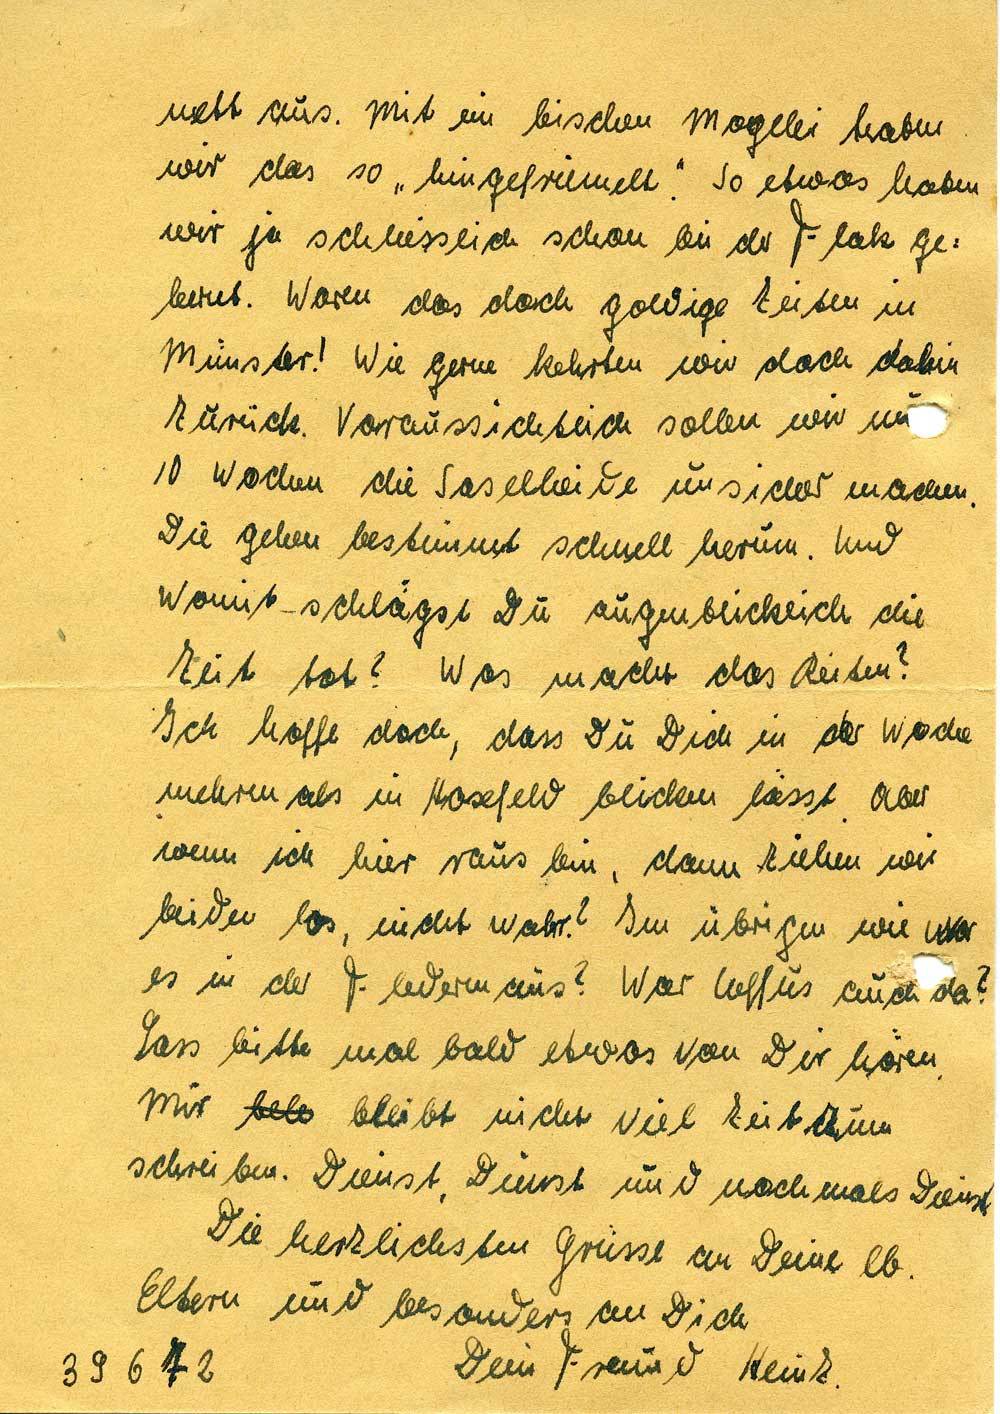 nett aus. Mit ein bischen Mogelei haben
wir das so „hingefriemelt“. So etwas haben
wir ja schliesslich schon bei der Flak ge=
lernt. Waren das doch goldige Zeiten in
Münster! Wie gerne kehrten wir doch dahin
zurück. Voraussichtlich sollen wir nur
10 Wochen die Saselheide unsicher machen.
Die gehen bestimmt schnell herum. Und
womit schlägst Du augenblicklich die
Zeit tot? Was macht das Reiten?
Ich hoffe doch, dass Du Dich in der Woche
mehrmals in Hoxfeld blicken lässt. Aber
wenn ich hier raus bin, dann ziehen wir
beiden los, nicht wahr? Im übrigen wie war
es in der Fledermaus? War auch da?
Lass bitte mal bald etwas von Dir hören.
Mir bleibt nicht viel Zeit zum
schreiben. Dienst, Dienst und nochmals Dienst
Die herzlichsten Grüsse an Deine lb.
Eltern und besonders an Dich
Dein Freund Heinz.
39672